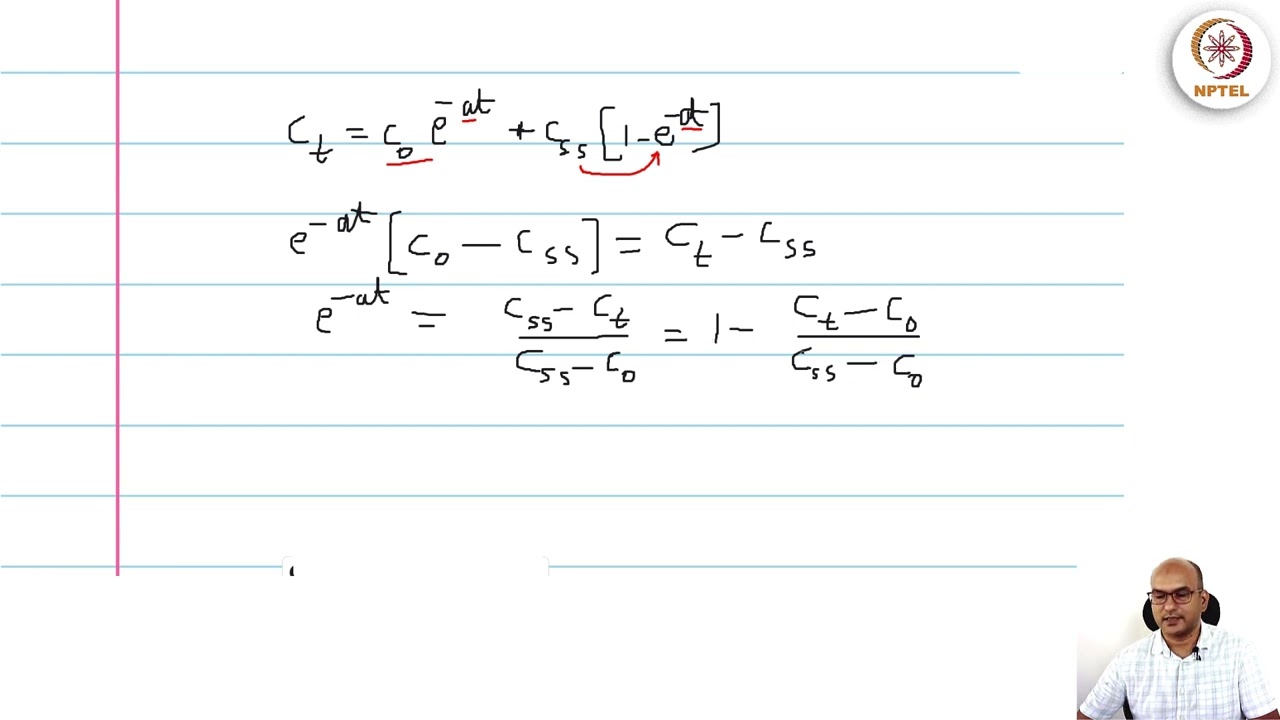 C_t = C_0 e^{-at} + C_{ss} [1 - e^{-at}]
e^{-at} [C_0 - C_{ss}] = C_t - C_{ss}
e^{-at} = \frac{C_{ss} - C_t}{C_{ss} - C_0} = 1 - \frac{C_t - C_0}{C_{ss} - C_0}
NPTEL